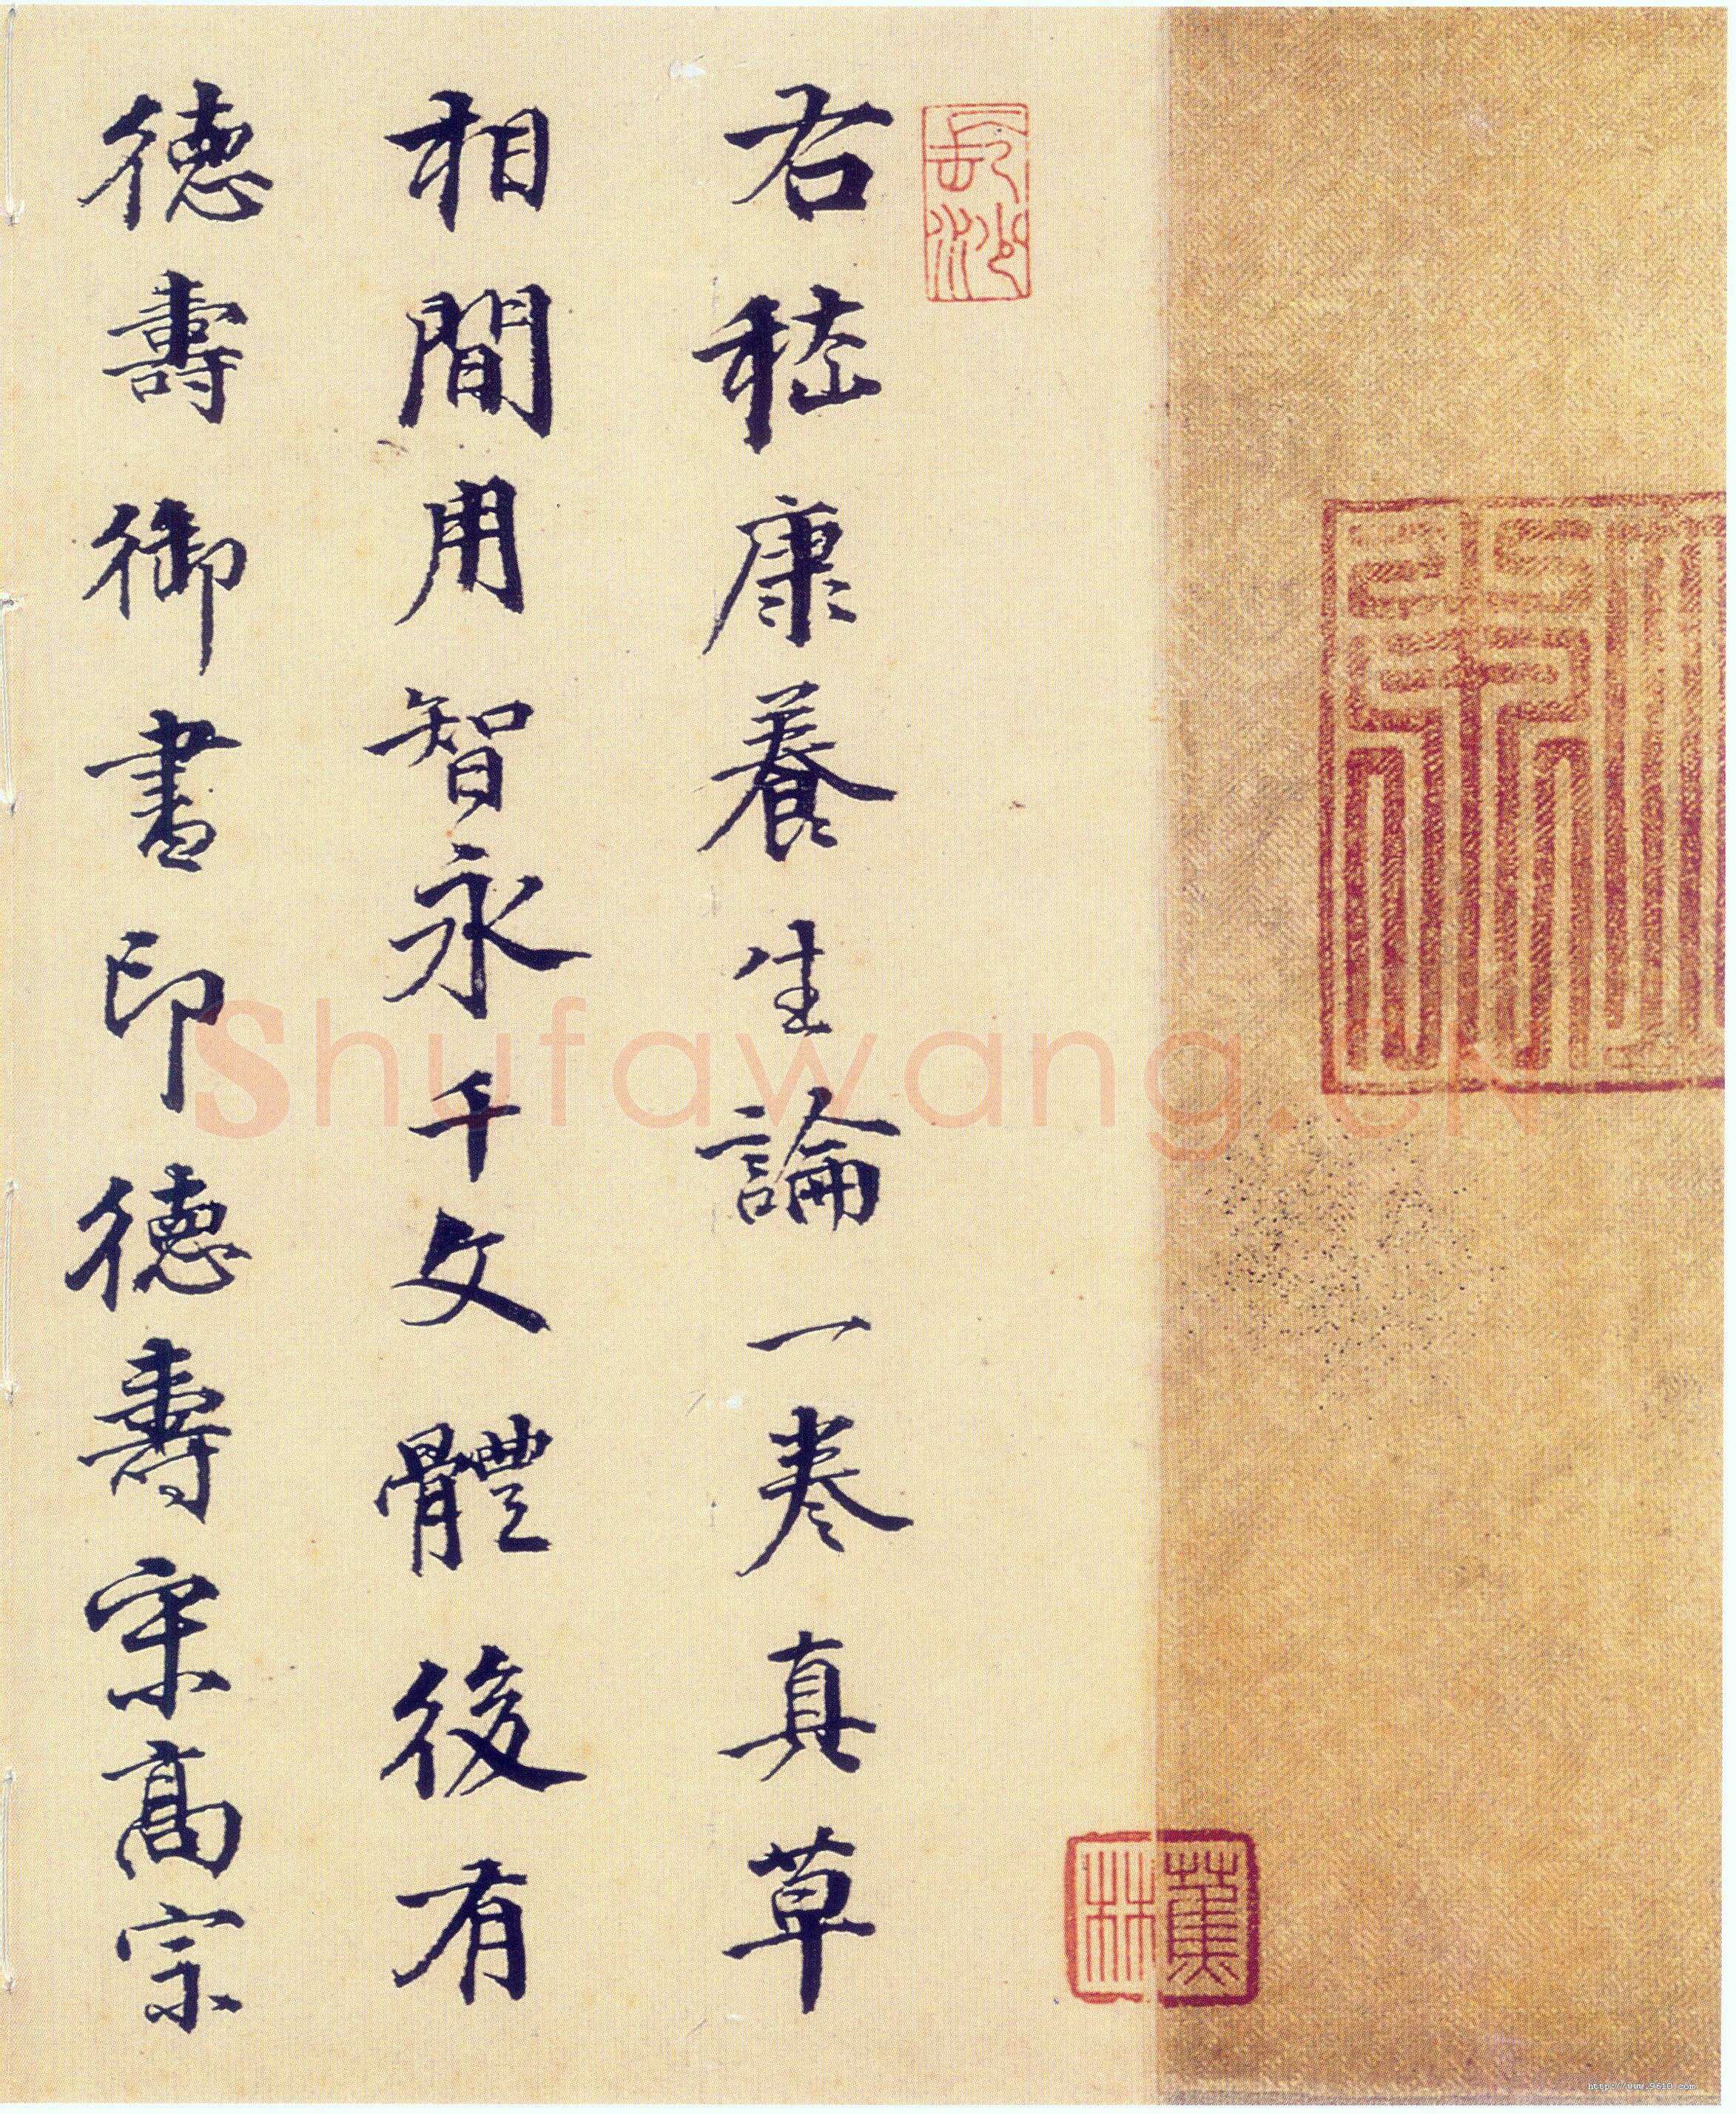 右嵇康養生論一卷真草
相間用智永千文體後有
德壽御書印德壽宋高宗
長沙
蕉林
Shufawang.CN
http://www.9610.com